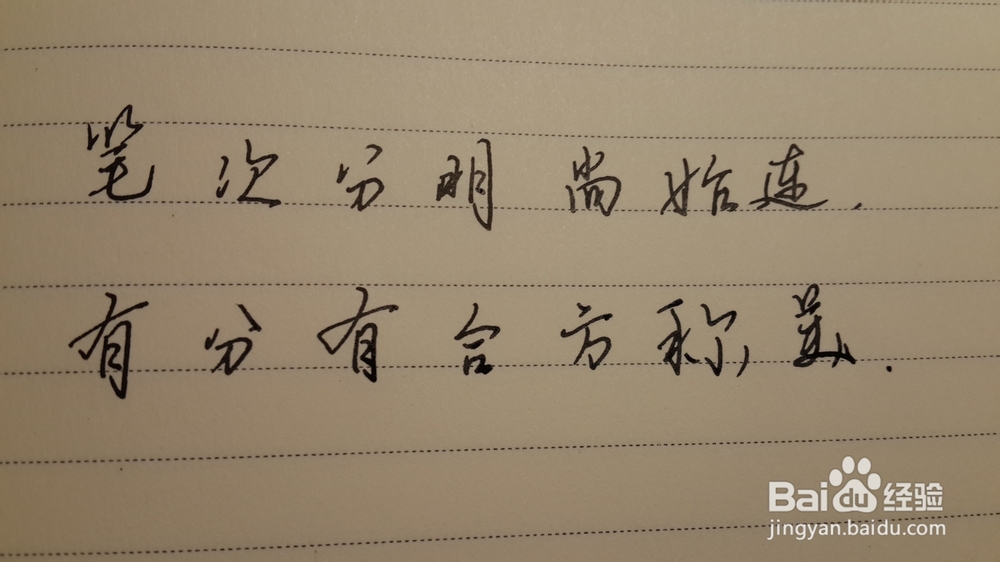 笔次分明尚始连.
有分有合方称美.
Baidu经验
jingyan.baidu.com